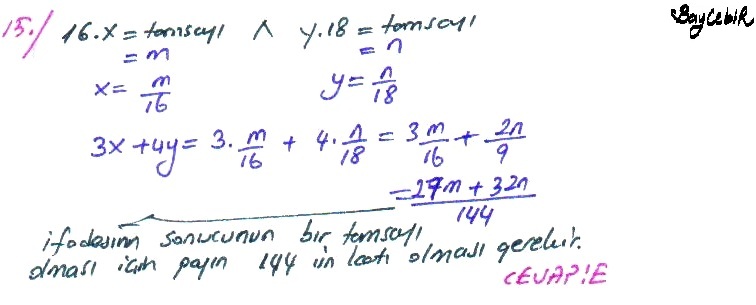 BayCebiR
15./ 16.x = tamsayı ∧ y.18 = tamsayı
= m = n
x = m/16 y = n/18
3x + 4y = 3. m/16 + 4. n/18 = 3 m/16 + 2n/9
= 27m + 32n / 144
ifadesinin sonucunun bir tamsayı
olması için payın 144 ün katı olması gerekir.
CEVAP:E